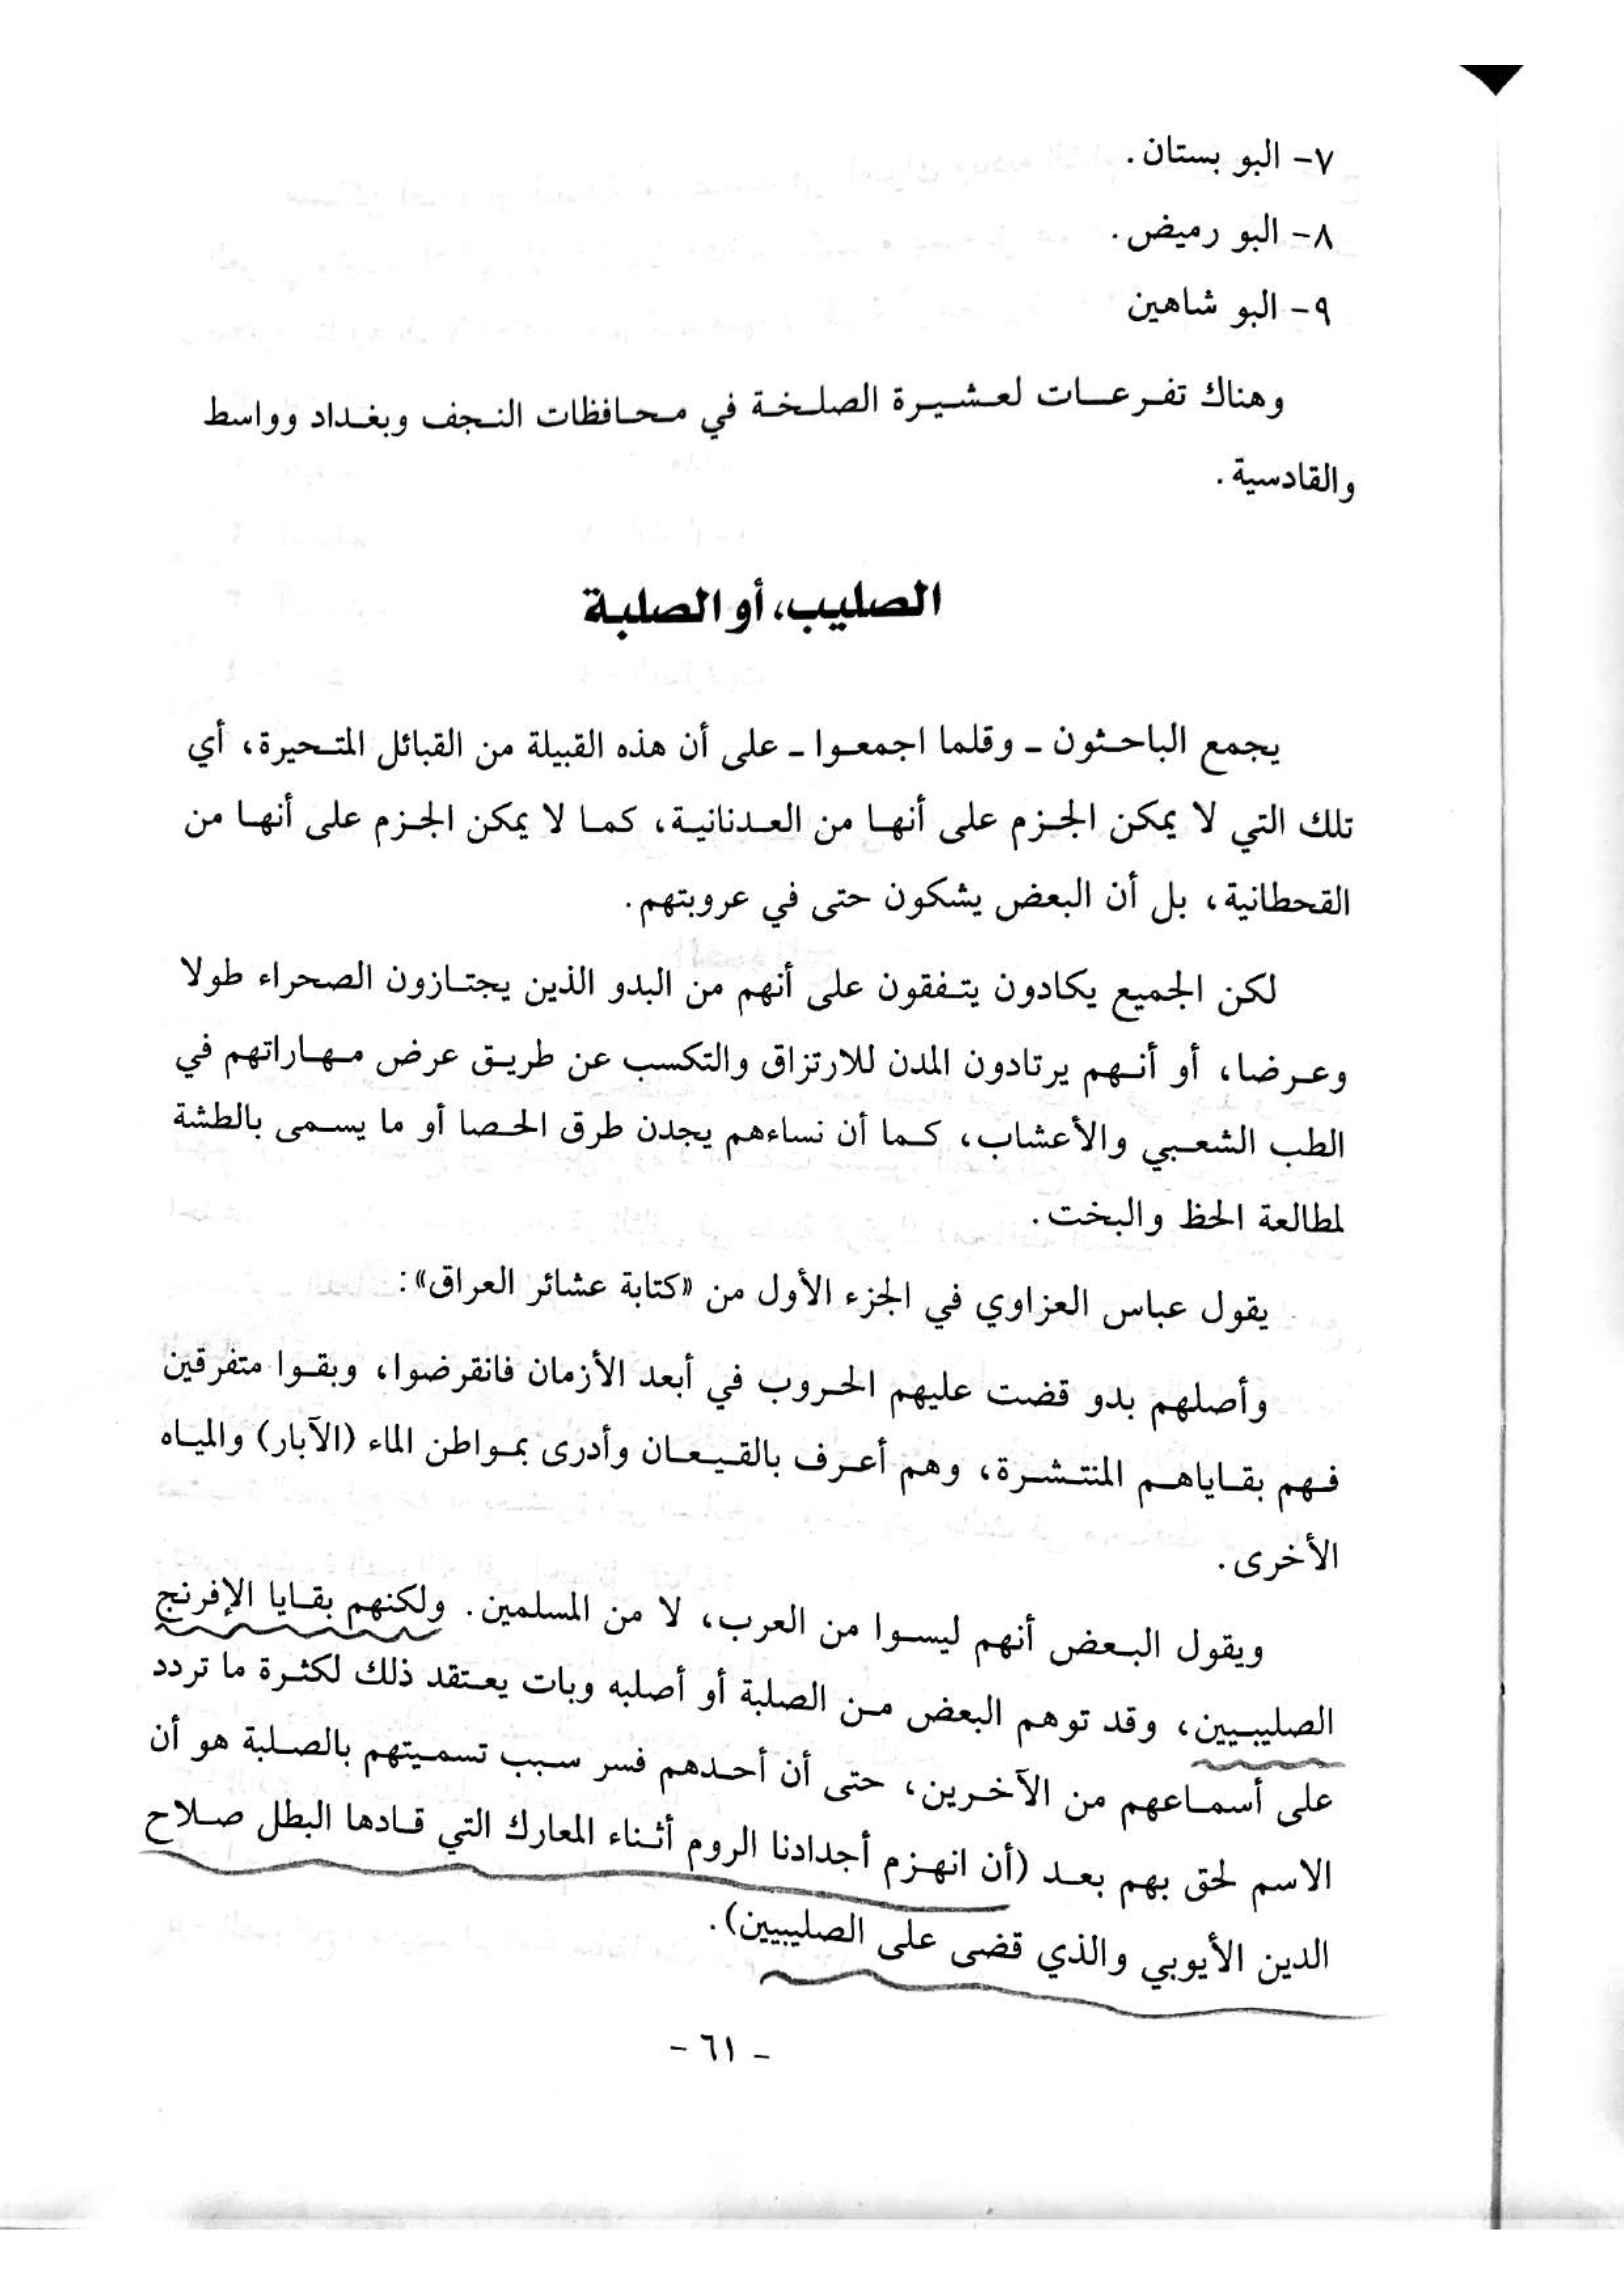 ٧- البو بستان.
٨- البو رميض.
٩- البو شاهين
وهناك تفرعات لعشيرة الصلخة في محافظات النجف وبغداد وواسط
والقادسية.
الصليب، أو الصلبة
يجمع الباحثون - وقلما اجمعوا - على أن هذه القبيلة من القبائل المتحيرة، أي
تلك التي لا يمكن الجزم على أنها من العدنانية، كما لا يمكن الجزم على أنها من
القحطانية، بل أن البعض يشكون حتى في عروبتهم.
لكن الجميع يكادون يتفقون على أنهم من البدو الذين يجتازون الصحراء طولا
وعرضا، أو أنهم يرتادون المدن للارتزاق والتكسب عن طريق عرض مهاراتهم في
الطب الشعبي والأعشاب، كما أن نساءهم يجدن طرق الحصا أو ما يسمى بالطشة
لمطالعة الحظ والبخت.
يقول عباس العزاوي في الجزء الأول من «كتابة عشائر العراق»:
وأصلهم بدو قضت عليهم الحروب في أبعد الأزمان فانقرضوا، وبقوا متفرقين
فهم بقاياهم المنتشرة، وهم أعرف بالقيعان وأدرى بمواطن الماء (الآبار) والمياه
الأخرى.
ويقول البعض أنهم ليسوا من العرب، لا من المسلمين. ولكنهم بقايا الإفرنج
الصليبيين، وقد توهم البعض من الصلبة أو أصلبه وبات يعتقد ذلك لكثرة ما تردد
على أسماعهم من الآخرين، حتى أن أحدهم فسر سبب تسميتهم بالصلبة هو أن
الاسم لحق بهم بعد (أن انهزم أجدادنا الروم أثناء المعارك التي قادها البطل صلاح
الدين الأيوبي والذي قضى على الصليبيين).
- ٦١ -